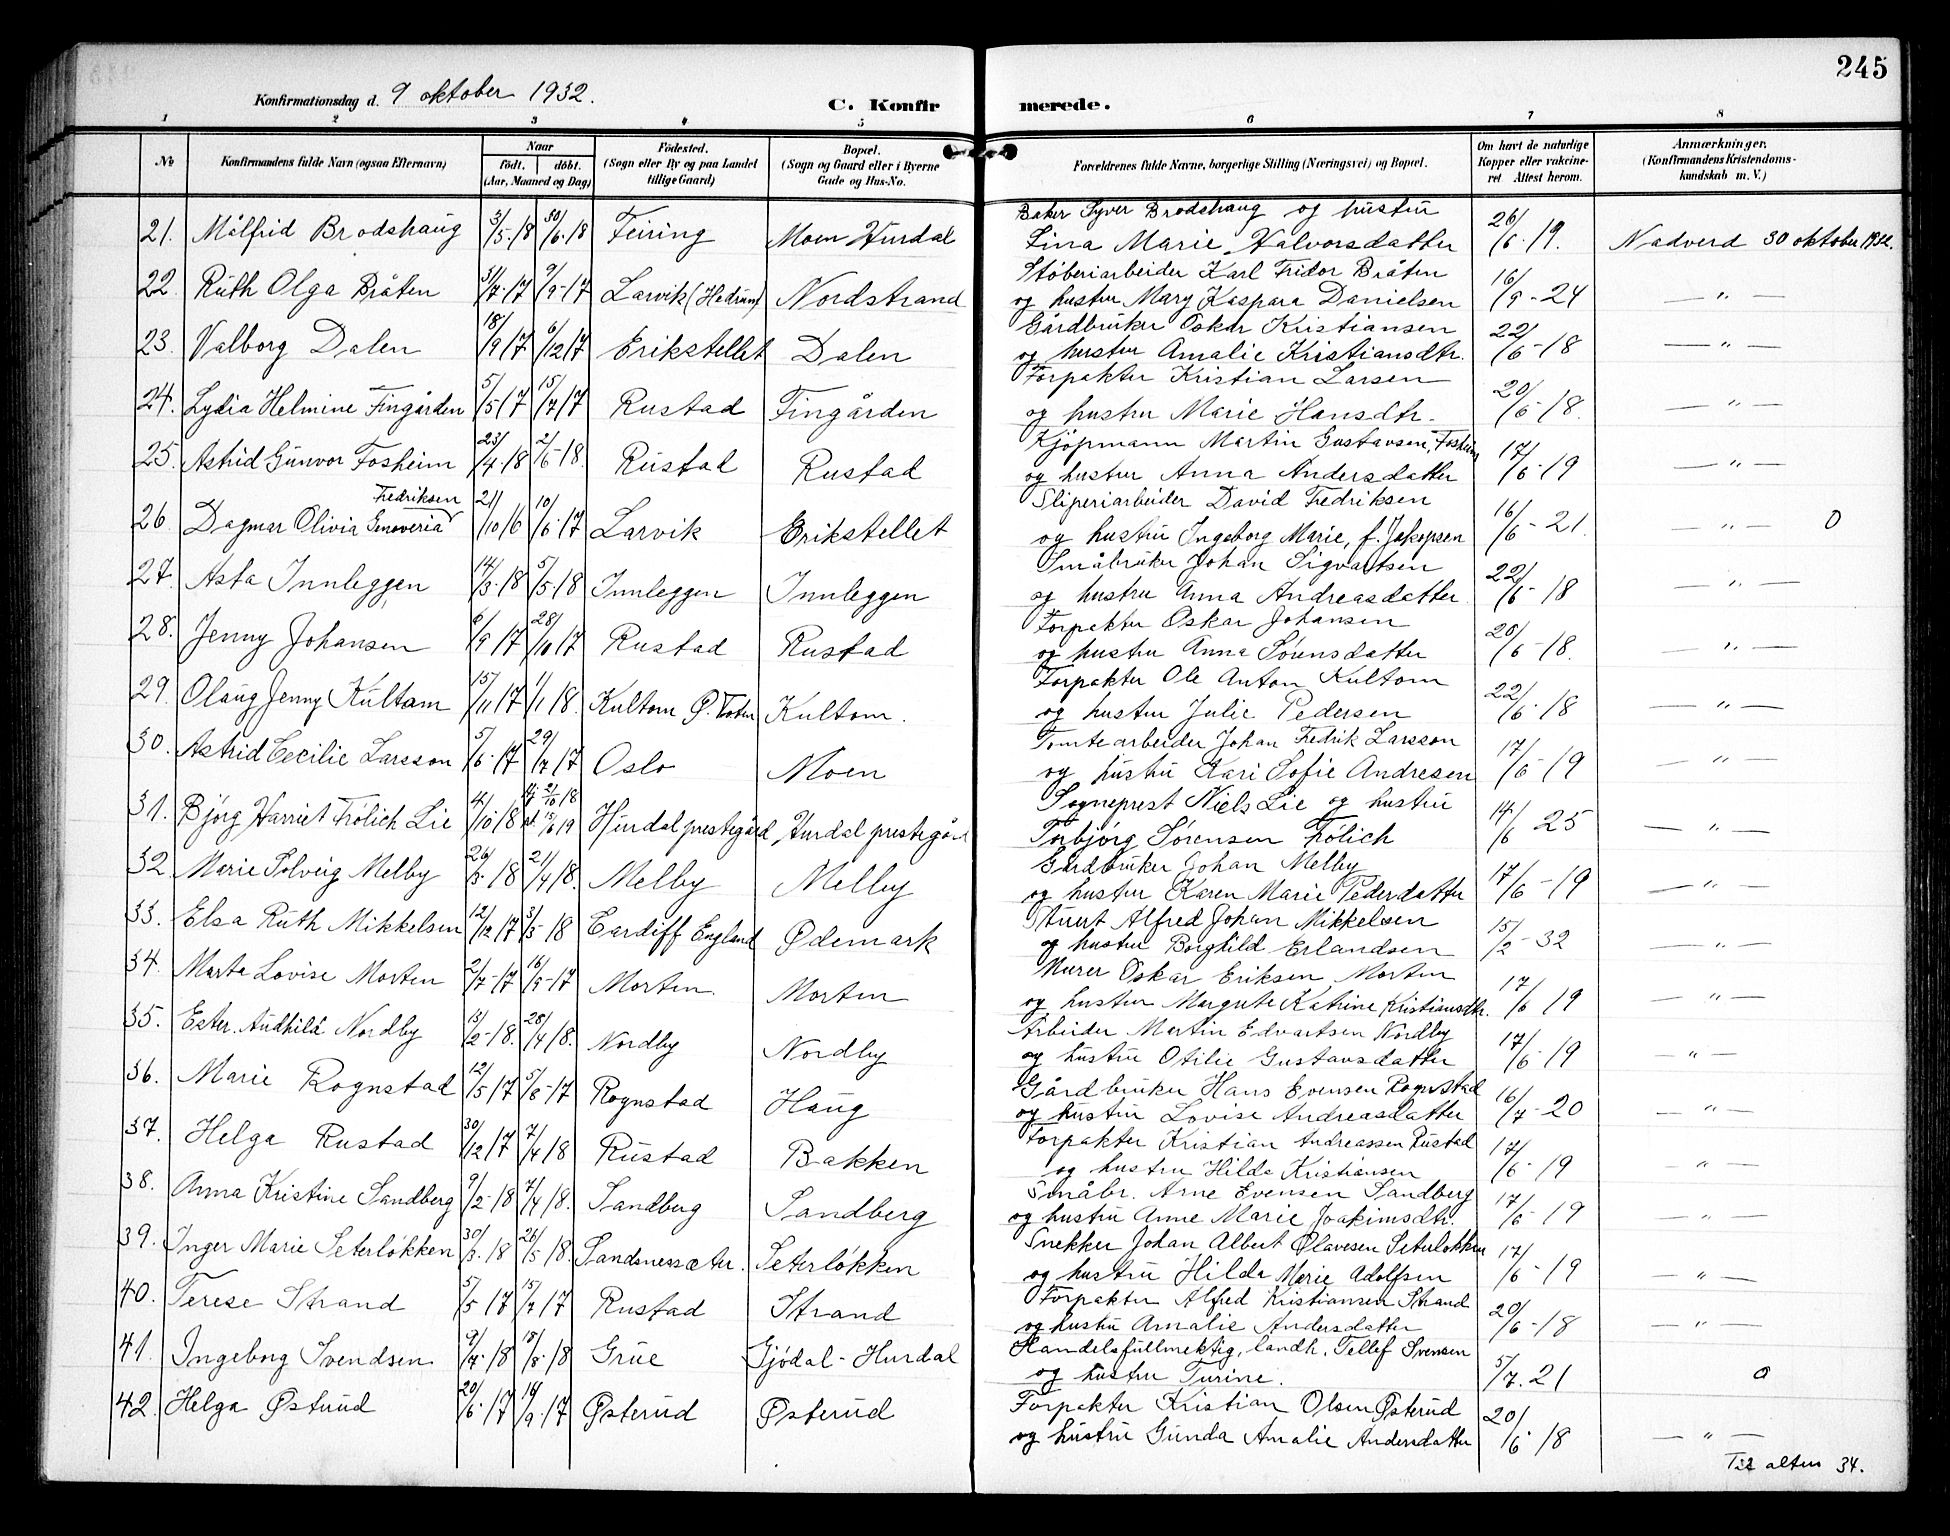 245
Konfirmationsdag d. 9 oktober 1932.
C. Konfirmerede.
1 2 3 4 5 6 7 8
No
Konfirmandens fulde Navn (ogsaa Efternavn)
Naar
født. døbt.
(Aar, Maaned og Dag)
Fødested.
(Sogn eller By og paa Landet
tillige Gaard)
Bopæl.
(Sogn og Gaard eller i Byerne
Gade og Hus-No.
Forældrenes fulde Navne, borgerlige Stilling (Næringsvei) og Bopæl.
Om havt de naturlige
Kopper eller vakcine-
ret Attest herom.
Anmærkninger.
(Konfirmandens Kristendoms-
kundskab m. V.)
Baker Syver Brodshaug og hustru
21. Målfrid Brodshaug 3/5-18 30/6-18 Feiring Moen Hurdal Lina Marie Halvorsdatter 26/6-19. Nadverd 30 oktober 1932.
Støberiarbeider Karl Fridor Bråten
22. Ruth Olga Bråten 31/7-17 9/9-17 Larvik (Hedrum) Nordstrand og hustru Mary Kaspara Danielsen 16/9-24 — " —
Gårdbruker Oskar Kristiansen
23. Valborg Dalen 18/9 17 6/12 17 Erikstellet Dalen og hustru Amalie Kristiansdtr. 22/6-18 — " —
Forpakter Kristian Larsen
24. Lydia Helmine Fingården 5/5 17 15/7 17 Rustad Fingården og hustru Marie Hansdtr. 20/6-18. — " —
Kjøpmann Martin Gustavsen Fosheim
25. Astrid Gunvor Fosheim 23/4-18 2/6-18. Rustad Rustad og hustru Anna Andersdatter 17/6-19 — " —
Fredriksen Sliperiarbeider David Fredriksen
26. Dagmar Olivia Genoveria 21/10 16 10/6-17 Larvik Erikstellet og hustru Ingeborg Marie, f. Jakopsen 16/6-21. — " — 0
Småbruker Johan Sigvartsen
27. Asta Innleggen 14/3-18 5/5-18 Innleggen Innleggen og hustru Anna Andreasdatter 22/6-18 — " —
Forpakter Oskar Johansen
28. Jenny Johansen 6/9 17 28/10 17 Rustad Rustad og hustru Anna Sørensdatter 20/6-18. — " —
Forpakter Ole Anton Kultom
29. Olaug Jenny Kultom 15/11 17 1/1 18. Kultom Ø. Toten Kultom. og hustru Julie Pedersen 22/6-18 — " —
Tomtearbeider Johan Fredrik Larsson
30. Astrid Cecilie Larsson 5/6-17 29/7 17 Oslo Moen og hustru Kari Sofie Andresen 17/6-19 — " —
Sogneprest Niels Lie og hustru
31. Bjørg Harriet Frølich Lie 4/10 18 2/10 18 15/6 19 Hurdal prestegård Hurdal prestegård Torbjørg Sørensen Frølich 14/6 25 — " —
Gårdbruker Johan Melby
32. Marie Solveig Melby 26/3-18 21/4 18. Melby Melby og hustru Karen Marie Pedersdatter 17/6-19 — " —
Stuert Alfred Johan Mikkelsen
33. Elsa Ruth Mikkelsen 12/12 17 3/3 18 Cardiff England Ødemark og hustru Borghild Erlandsen 15/2-32 — " —
Murer Oskar Eriksen Morten
34. Marta Lovise Morten 2/7-17 16/9-17 Morten. Morten og hustru Margrete Katrine Kristiansdtr. 17/6 19 — " —
Arbeider Martin Edvartsen Nordby
35. Ester Audhild Nordby 13/2-18. 28/4 18. Nordby Nordby og hustru Otilie Gustavsdatter 17/6-19 — " —
Gårdbruker Hans Evensen Rognstad
36. Marie Rognstad 12/5 17 5/8-17 Rognstad Haug og hustru Lovise Andreasdatter 16/7-20 — " —
Forpakter Kristian Andreassen Rustad
37. Helga Rustad 30/12 17 7/4 18 Rustad Bakken og hustru Hilda Kristiansen 17/6-19 — " —
Småbr. Arne Evensen Sandberg
38. Anna Kristine Sandberg 9/2-18 7/4 18. Sandberg Sandberg og hustru Anne Marie Joakimsdtr. 17/6-19 — " —
Snekker Johan Albert Olavesen Seterløkken
39. Inger Marie Seterløkken 30/3-18 26/5 18. Sandsnessæter. Seterløkken og hustru Hilda Marie Adolfsen 17/6-19 — " —
Forpakter Alfred Kristiansen Strand
40. Terese Strand 5/5 17 15/7 17 Rustad Strand og hustru Amalie Andersdatter 20/6-18 — " —
Handelsfullmektig, landh. Tellef Svensen
41. Ingeborg Svendsen 9/7-18 18/8-18 Grue Gjødal-Hurdal og hustru Turine. 5/7.21 0
Forpakter Kristian Olsen Østerud
42. Helga Østerud 20/6-17 14/9-17 Østerud Østerud og hustru Gunda Amalie Andersdatter 20/6-18 — " —
Til alters 34.